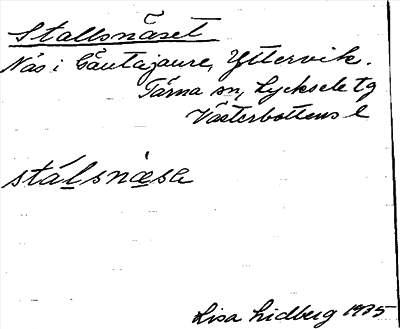 Stallsnäset
Näs i Gäutajaure, Yttervik.
Tärna sn, Lycksele tg
Västerbottens l
stálsnæsa
Lisa Lidberg 1975